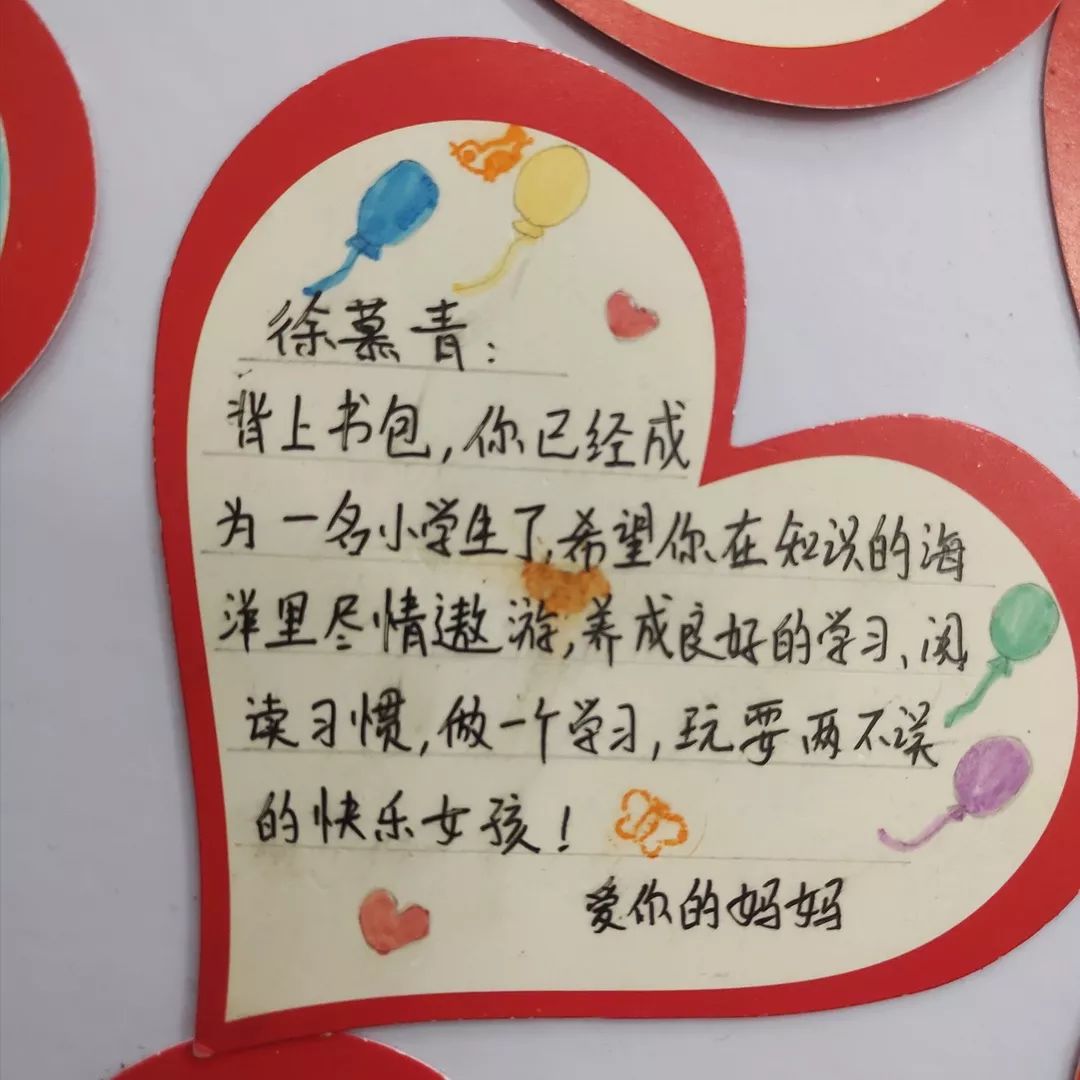 徐慕青：
背上书包,你已经成
为一名小学生了,希望你在知识的海
洋里尽情遨游,养成良好的学习、阅
读习惯,做一个学习,玩耍两不误
的快乐女孩！
爱你的妈妈